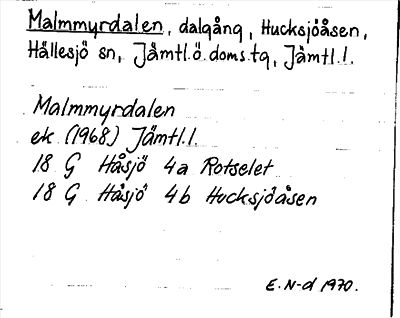 Malmmyrdalen, dalgång, Hucksjöåsen,
Hällesjö sn, Jämtl.ö.doms.tg, Jämtl.l.
Malmmyrdalen
ek (1968) Jämtl.l.
18 G Håsjö 4a Rotselet
18 G Håsjö 4b Hucksjöåsen
E.N-d 1970.